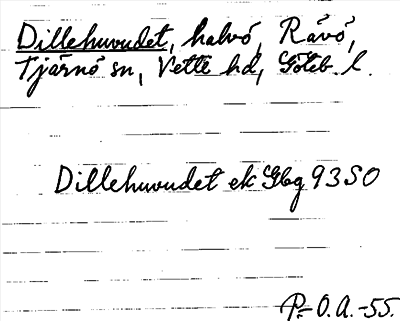 Dillehuvudet, halvö, Råvö,
Tjärnö sn, Vette hd, Göteb. l.
Dillehuvudet ek Gbg 93SO
P. O.A. -55.